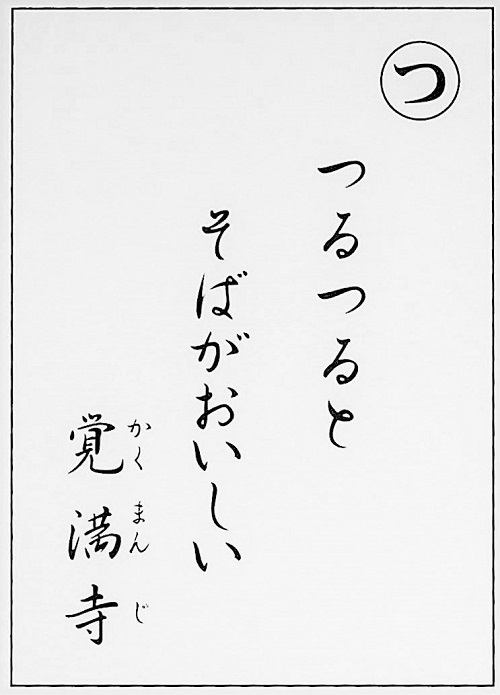 つ
つるつると
そばがおいしい
覚満寺
かくまんじ